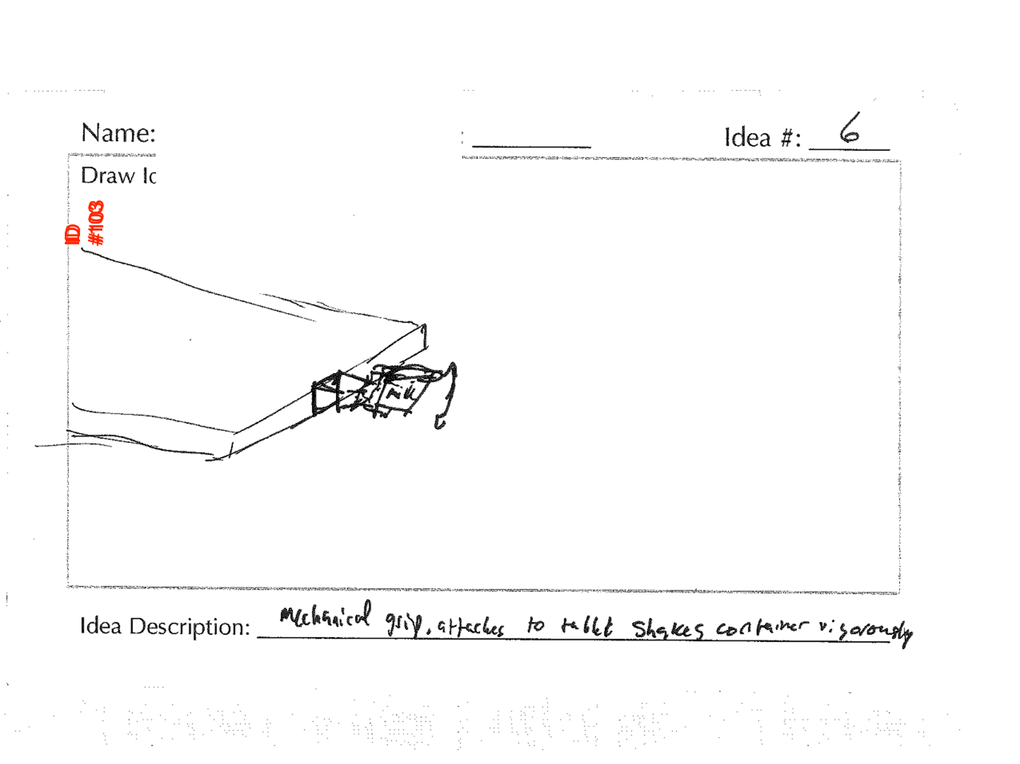 Name: : Idea #: 6
Draw Id
ID
#103
milk
Idea Description: mechanical grip, attaches to tablet shakes container vigorously